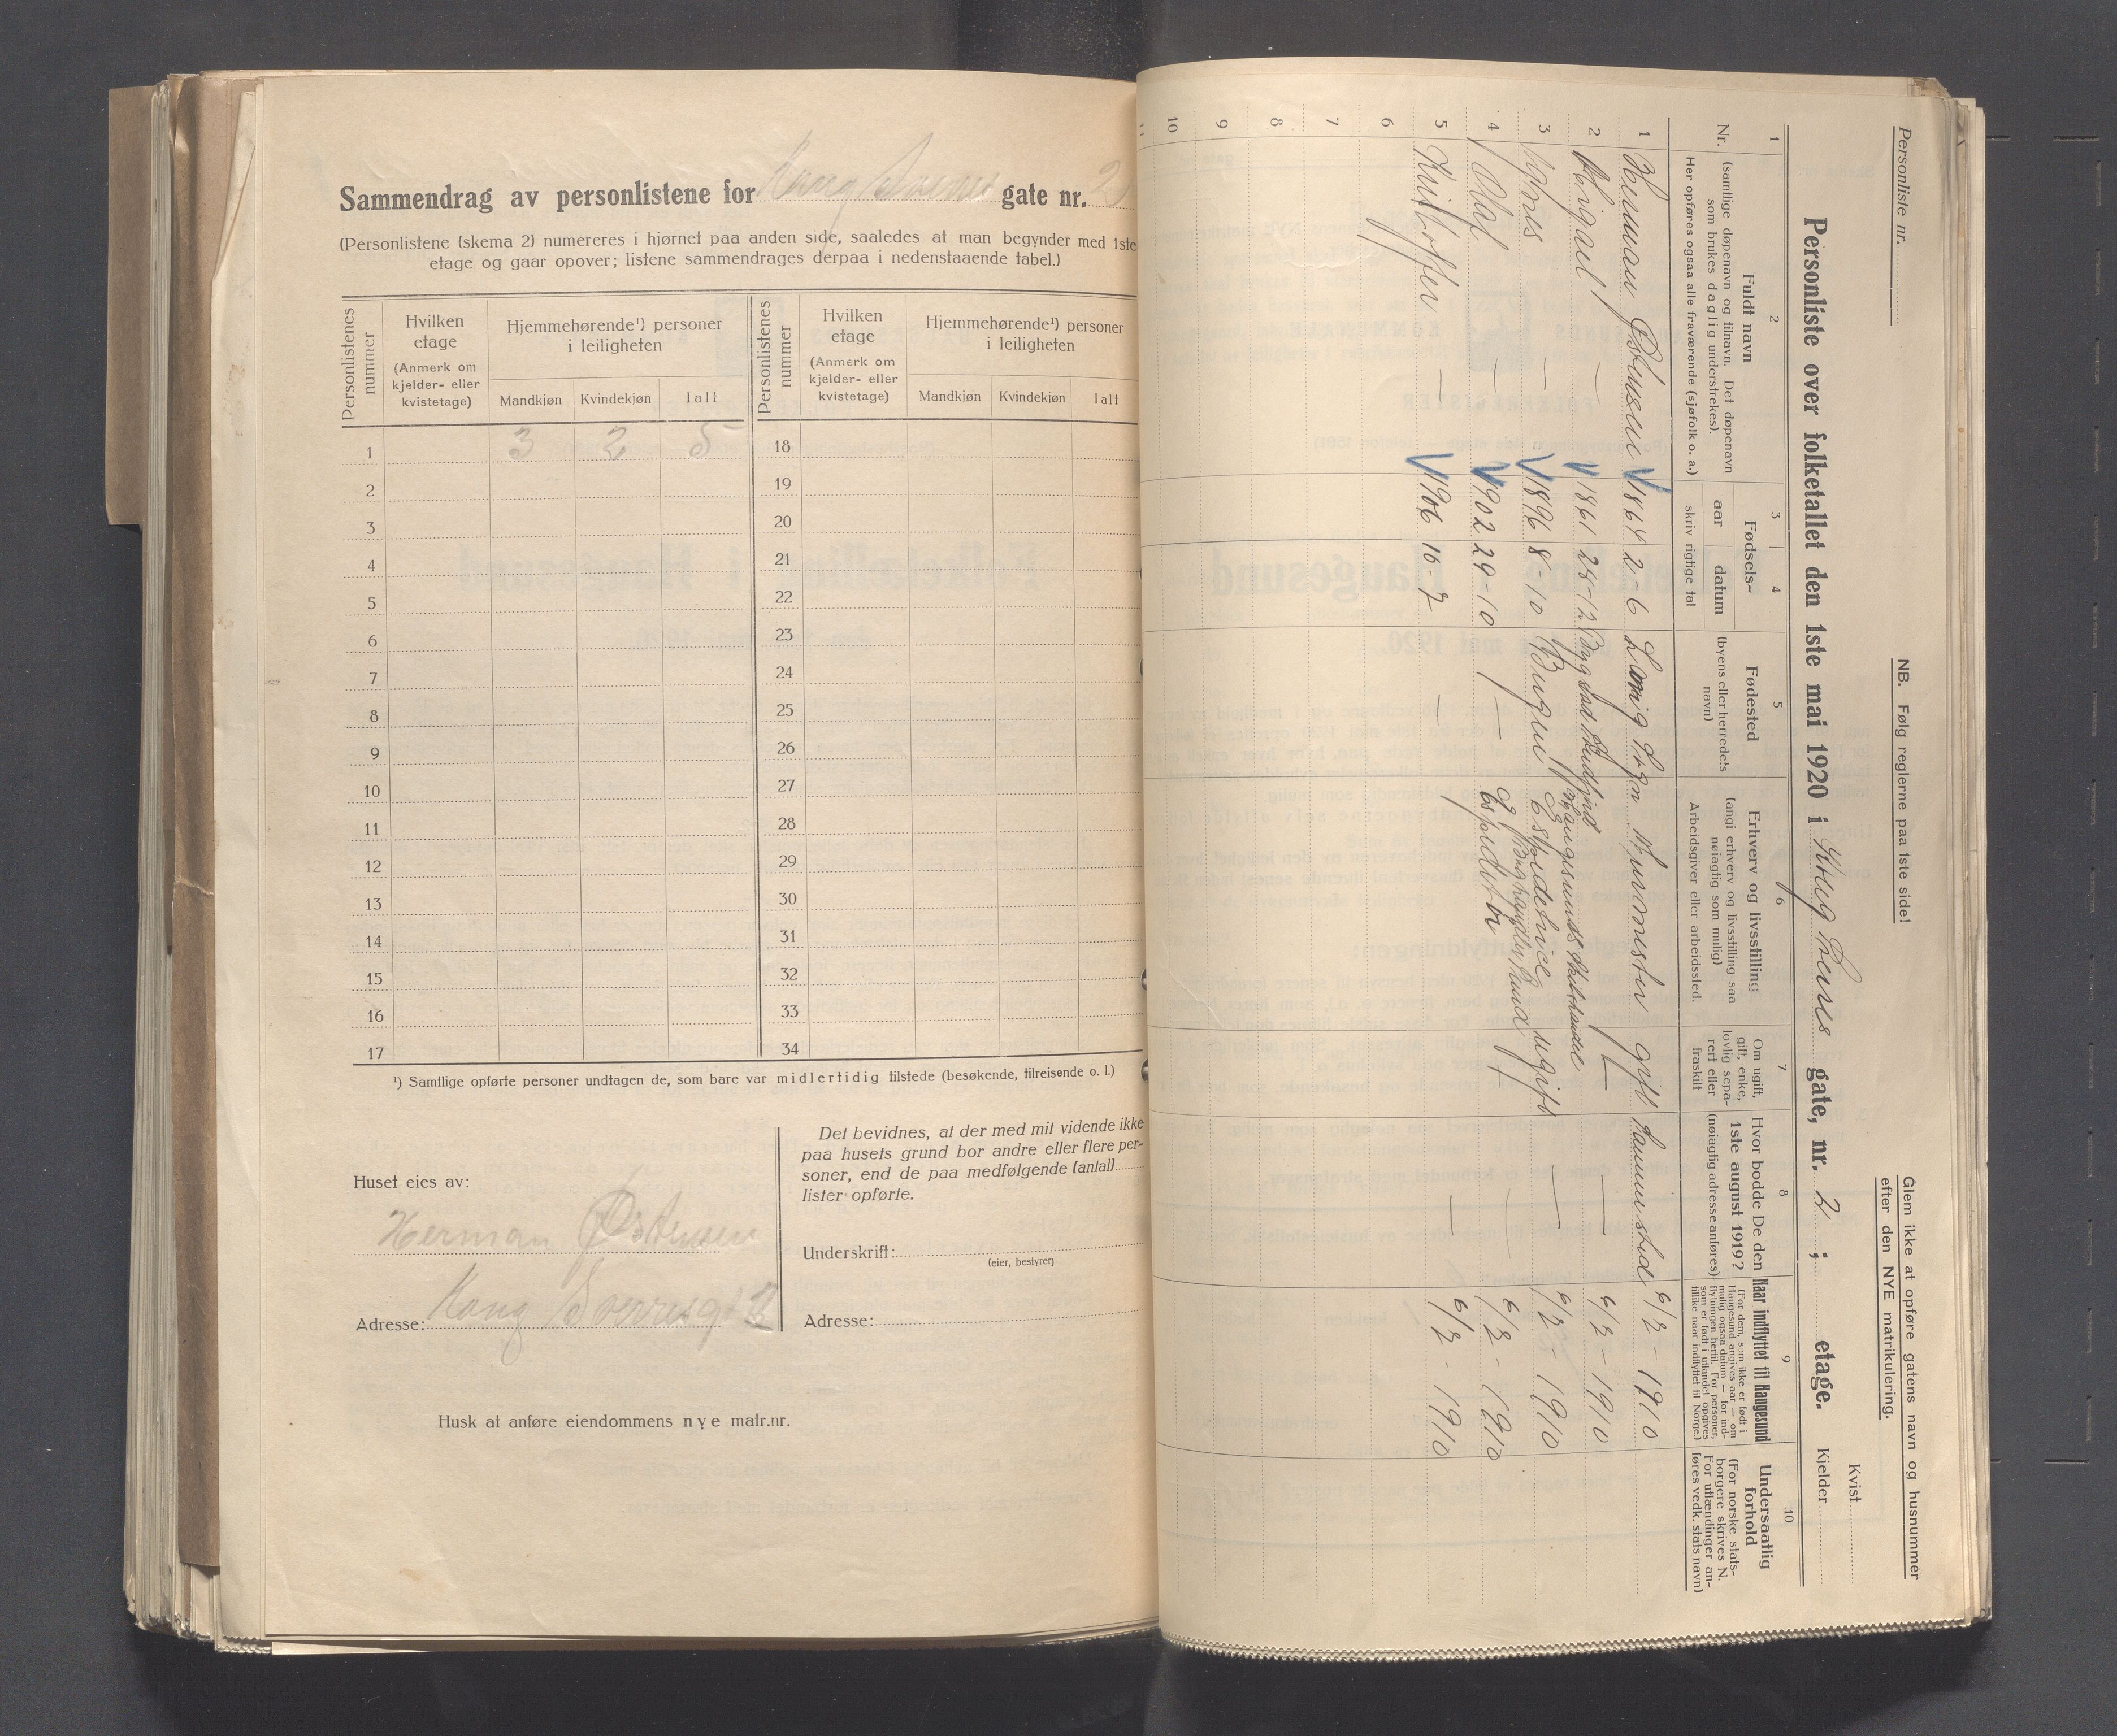 Sammendrag av personlistene for Kong Sverres gate nr. 2
(Personlistene (skema 2) numereres i hjørnet paa anden side, saaledes at man begynder med 1ste
etage og gaar opover; listene sammendrages derpaa i nedenstaaende tabel.)
Personlistenes nummer
Hvilken etage
(Anmerk om kjelder- eller kvistetage)
Hjemmehørende¹) personer i leiligheten
Mandkjøn Kvindekjøn Ialt
Personlistenes nummer
Hvilken etage
(Anmerk om kjelder- eller kvistetage)
Hjemmehørende¹) personer i leiligheten
Mandkjøn Kvindekjøn Ialt
1 3 2 5 18
2 19
3 20
4 21
5 22
6 23
7 24
8 25
9 26
10 27
11 28
12 29
13 30
14 31
15 32
16 33
17 34
¹) Samtlige opførte personer undtagen de, som bare var midlertidig tilstede (besøkende, tilreisende o. l.)
Huset eies av:
Herman Østensen
Adresse: Kong Sverresgt 2
Husk at anføre eiendommens nye matr.nr.
Det bevidnes, at der med mit vidende ikke
paa husets grund bor andre eller flere per-
soner, end de paa medfølgende (antal)
lister opførte.
Underskrift:
(eier, bestyrer)
Adresse:
Personliste nr.
NB. Følg reglerne paa 1ste side!
Glem ikke at opføre gatens navn og husnummer
efter den NYE matrikulering.
Personliste over folketallet den 1ste mai 1920 i Kong Sverres gate, nr. 2 ; etage.
Kvist
Kjelder
1 2 3 4 5 6 7 8 9 10
Nr.
Fuldt navn
(samtlige døpenavn og tilnavn. Det døpenavn
som brukes daglig understrekes).
Her opføres ogsaa alle fraværende (sjøfolk o. a.)
Fødsels-
aar datum
skriv rigtige tal
Fødested
(byens eller herredets
navn)
Erhverv og livsstilling
(angi erhverv og livsstilling saa
nøiagtig som mulig)
Arbeidsgiver eller arbeidssted.
Om ugift,
gift, enke,
lovlig sepa-
rert eller
fraskilt
Hvor bodde De den
1ste august 1919?
(nøiagtig adresse anføres)
Naar indflyttet til Haugesund
(For dem, som ikke er født i
Haugesund angives aar — om
mulig ogsaa datum — for ind-
flytningen hertil. For personer,
som er født i utlandet opgives
tillike naar indflyttet til Norge.)
Undersaatlig
forhold
(For norske stats-
borgere skrives N.
For utlændinger an-
føres vedk. stats navn)
1 Herman Østensen 1864 2-6 murmester gift samme sted 6/2 - 1910
2 Abigael — 1861 28-12 — — 6/2 - 1910
3 — 1896 8-10 Bergen ugift — 6/2 - 1910
4 Olaf — 1902 29-10 — — — 6/2 - 1910
5 Kristoffer — 1906 16-7 — — 6/2 - 1910
6
7
8
9
10
11